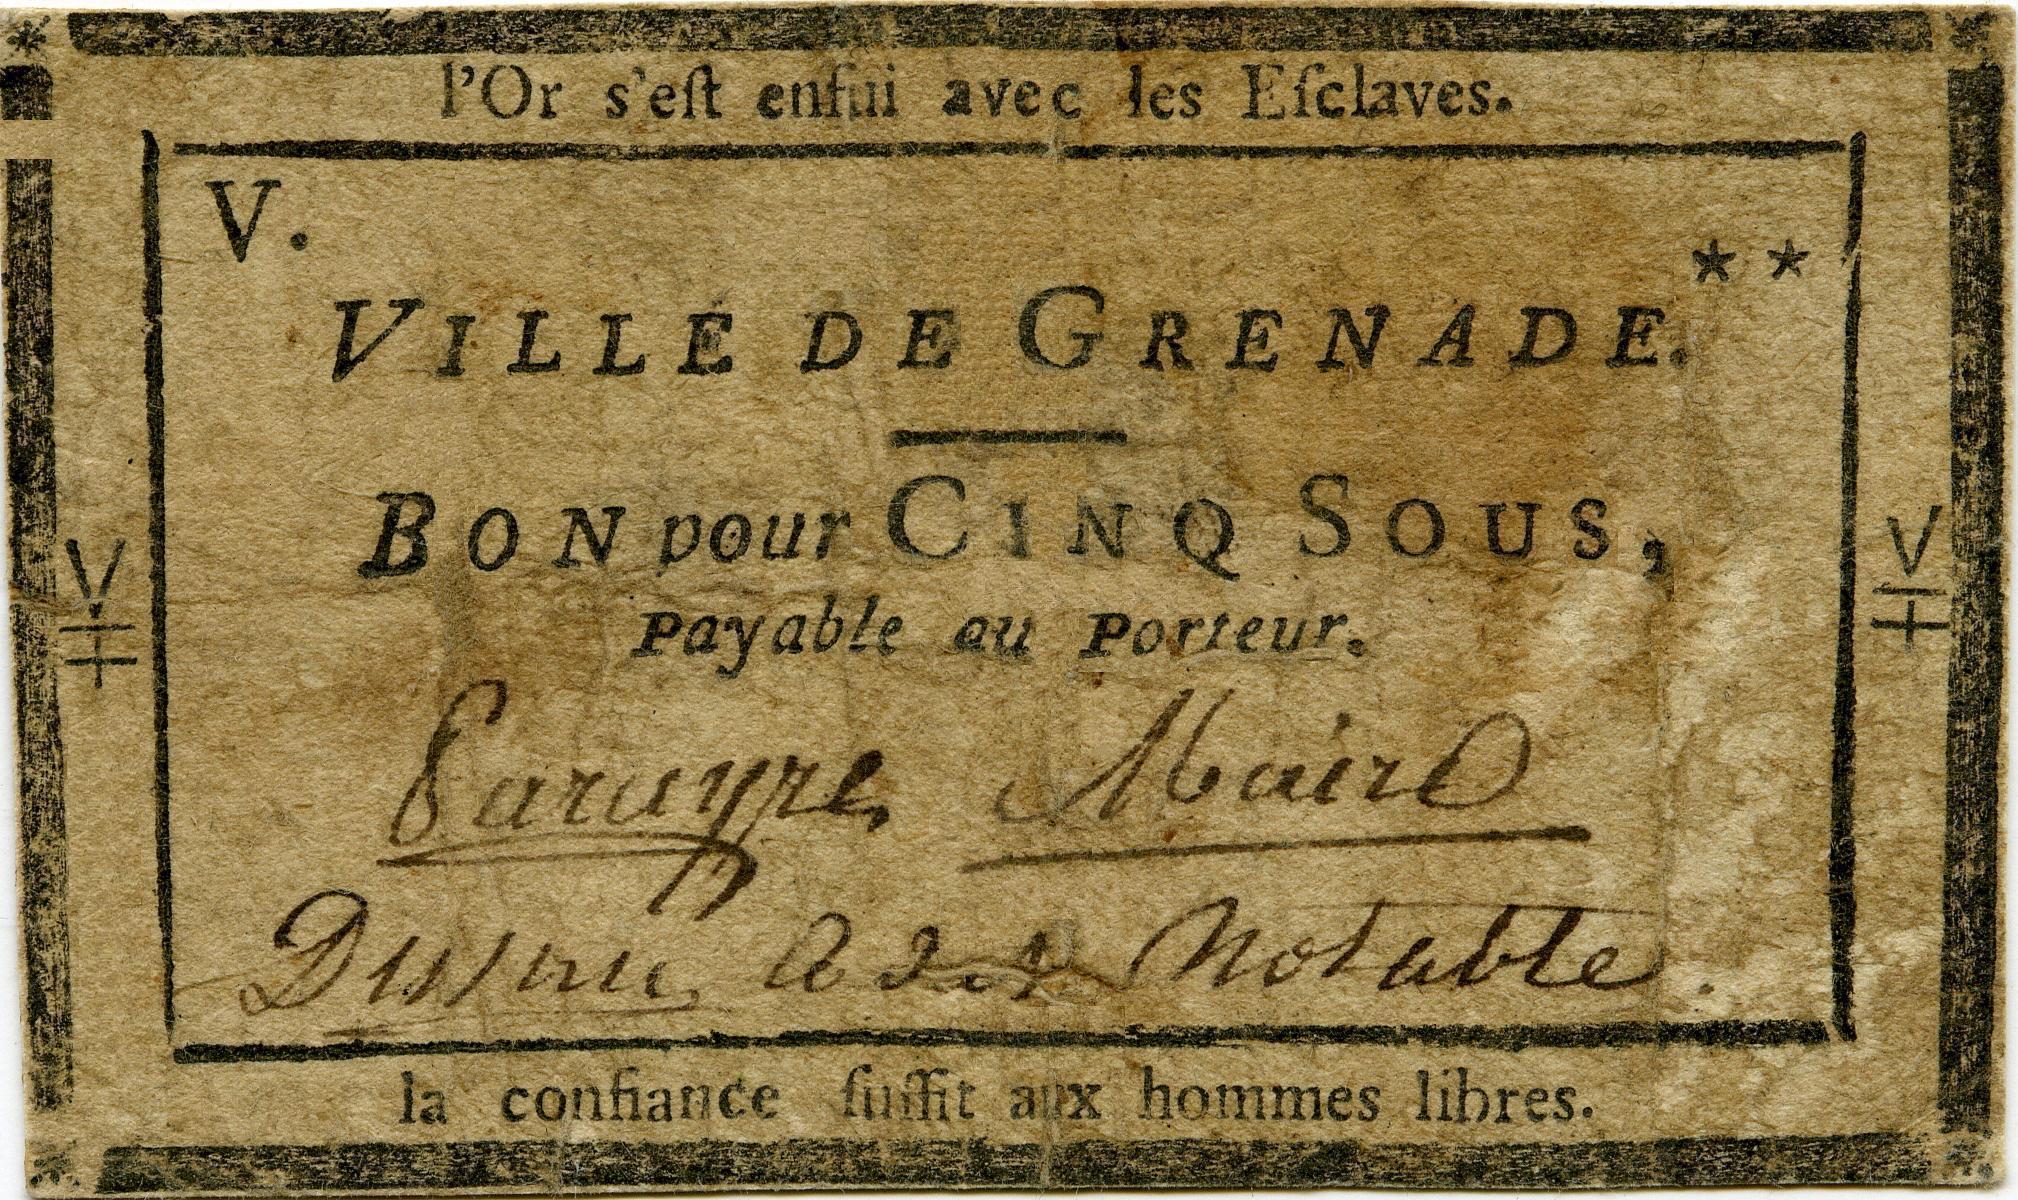 l'Or s'eſt enfui avec les Eſclaves.
V.
**
VILLE DE GRENADE.
BON pour CINQ SOUS,
Payable au Porteur.
Maire
Notable
la confiance ſuffit aux hommes libres.